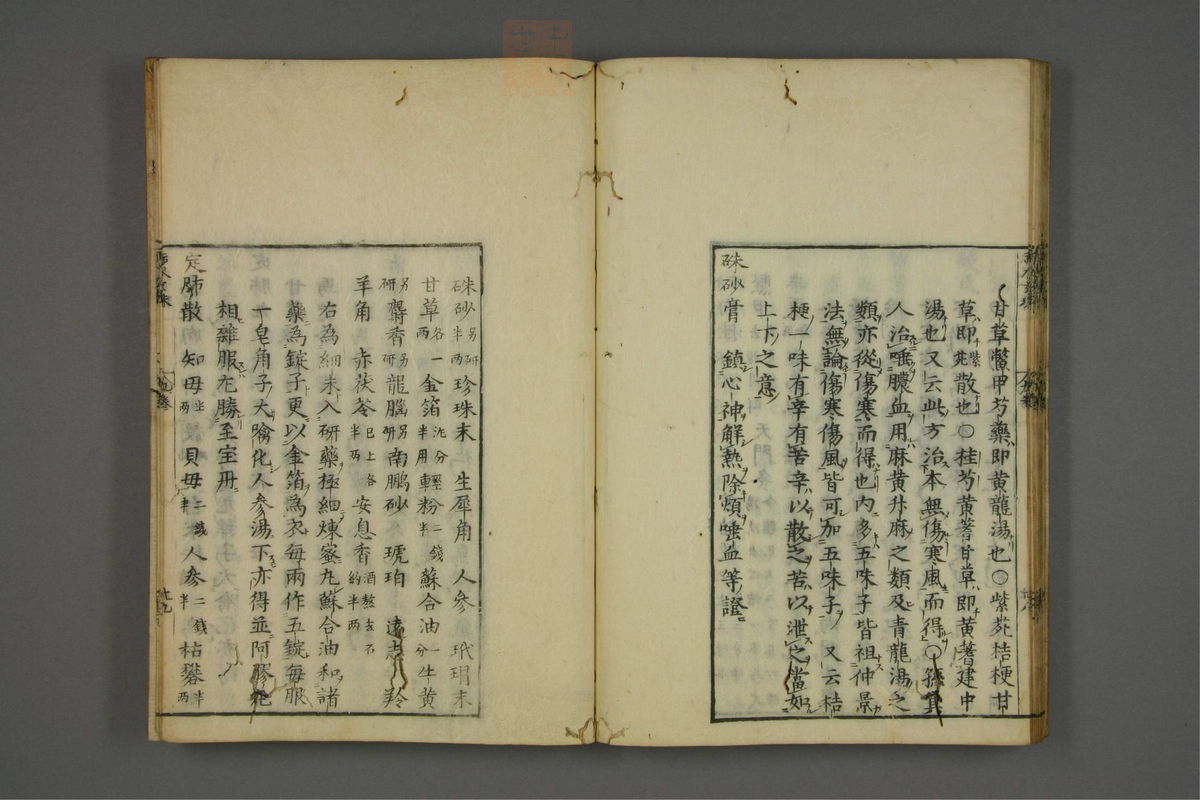 甘草鱉甲芍藥即黄龍湯也○紫菀桔梗甘
草即紫菀散也○桂芍黄蓍甘草即黄蓍建中
湯也又云此方治本無傷寒風而得○孫真
人治唾膿血用麻黄升麻之類及青龍湯之
類亦從傷寒而得也内多五味子皆祖仲景
法無論傷寒傷風皆可加五味子又云桔
梗一味有辛有苦辛以散之苦以泄之當如
上下之意
硃砂膏 鎮心神解熱除煩唾血等證
硃砂另研半两珍珠末 生犀角 人參 玳瑁末
甘草各一两金箔泥分半用輕粉二錢半蘇合油一分牛黄
研麝香另研龍腦另研南鵬砂 琥珀 遠志 羚
羊角 赤茯苓已上各半两安息香酒熬去石約半两
右為細末入研藥極細煉蜜丸蘇合油和諸
藥為錠子更以金箔為衣每兩作五錠每服
一皂角子大噙化人參湯下亦得並阿膠
相雜服尤勝至宝丹
定肺散 知母 两貝母二錢半人參二錢半枯礬半两